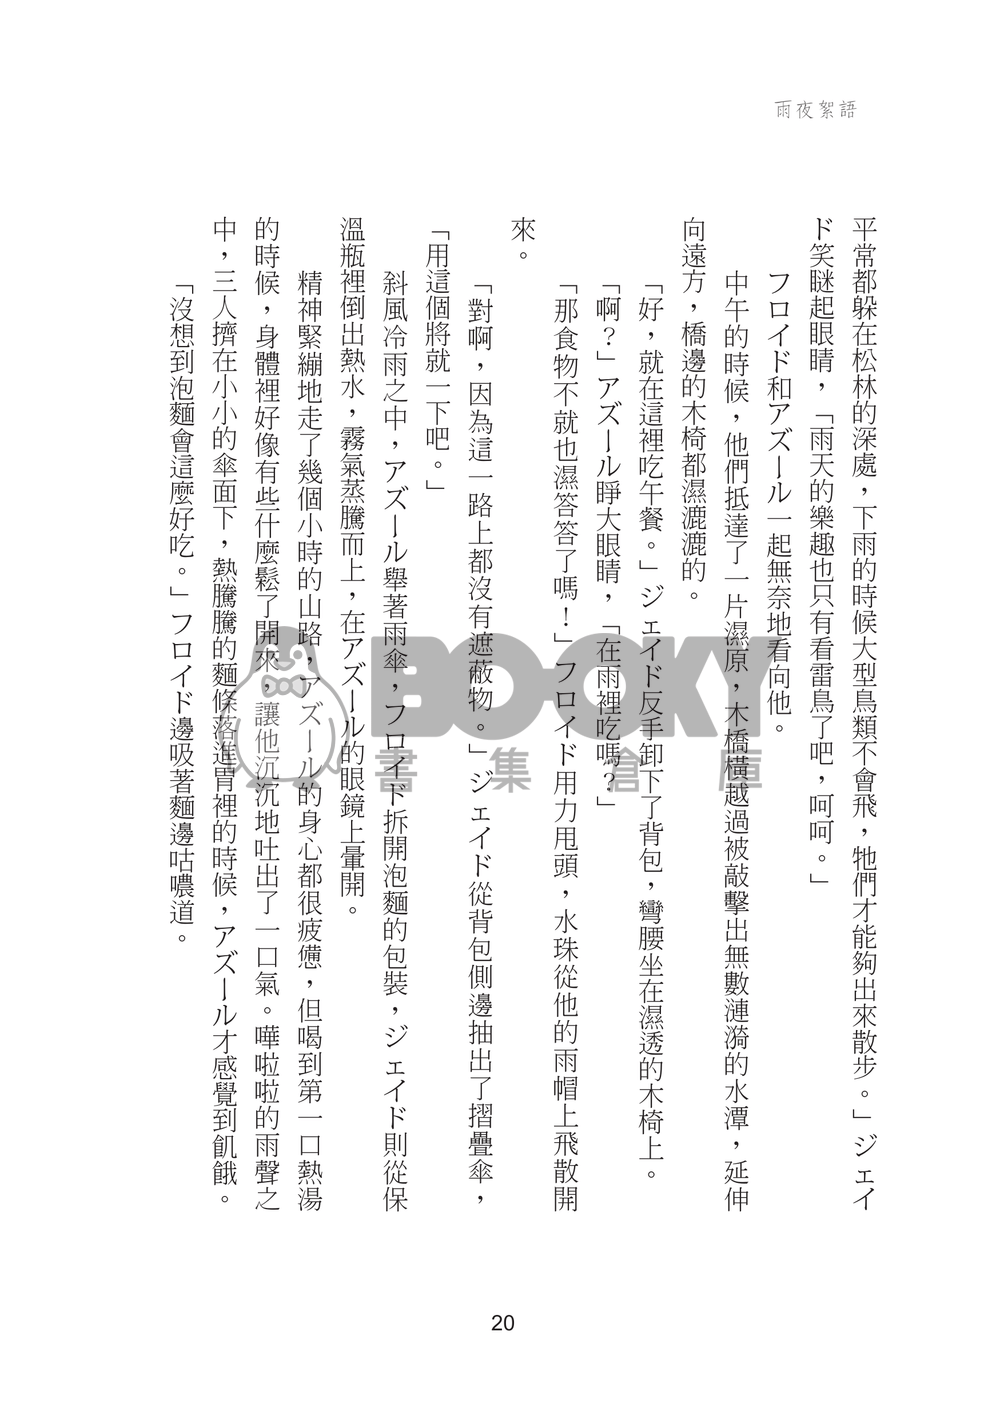 雨夜絮語
平常都躲在松林的深處，下雨的時候大型鳥類不會飛，牠們才能夠出來散步。」ジェイ
ド笑瞇起眼睛，「雨天的樂趣也只有看雷鳥了吧，呵呵。」
フロイド和アズール一起無奈地看向他。
中午的時候，他們抵達了一片濕原，木橋橫越過被敲擊出無數漣漪的水潭，延伸
向遠方，橋邊的木椅都濕漉漉的。
「好，就在這裡吃午餐。」ジェイド反手卸下了背包，彎腰坐在濕透的木椅上。
「啊？」アズール睜大眼睛，「在雨裡吃嗎？」
「那食物不就也濕答答了嗎！」フロイド用力甩頭，水珠從他的雨帽上飛散開
來。
「對啊，因為這一路上都沒有遮蔽物。」ジェイド從背包側邊抽出了摺疊傘，
「用這個將就一下吧。」
斜風冷雨之中，アズール舉著雨傘，フロイド拆開泡麵的包裝，ジェイド則從保
溫瓶裡倒出熱水，霧氣蒸騰而上，在アズール的眼鏡上暈開。
精神緊繃地走了幾個小時的山路，アズール的身心都很疲憊，但喝到第一口熱湯
的時候，身體裡好像有些什麼鬆了開來，讓他沉沉地吐出了一口氣。嘩啦啦的雨聲之
中，三人擠在小小的傘面下，熱騰騰的麵條落進胃裡的時候，アズール才感覺到飢餓。
「沒想到泡麵會這麼好吃。」フロイド邊吸著麵邊咕噥道。
BOOKY
書集倉庫
20